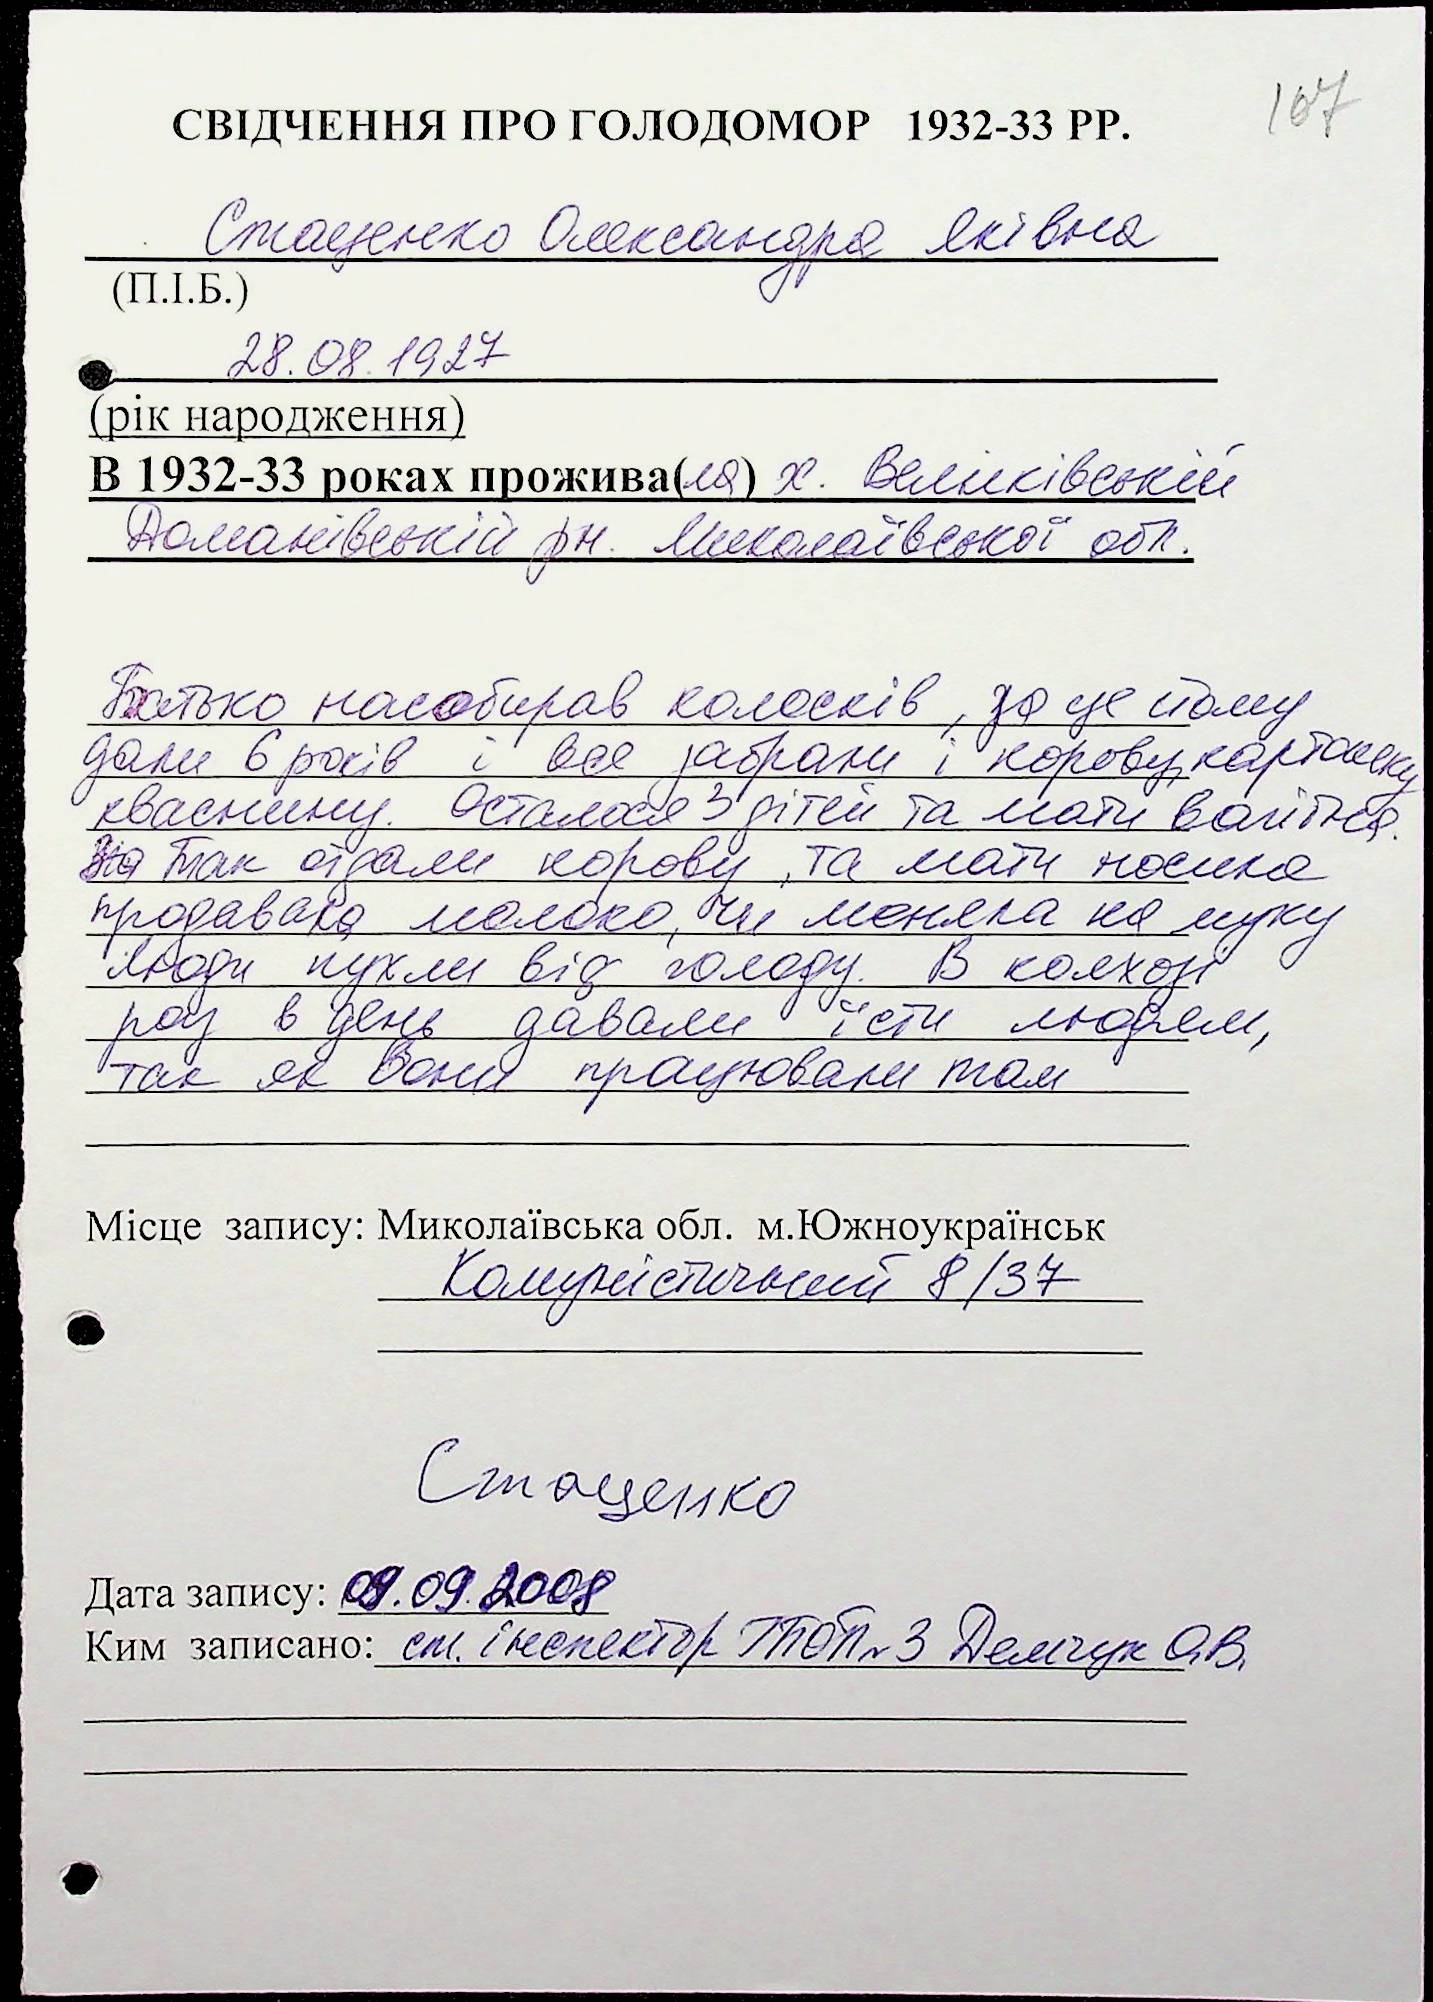 107
СВІДЧЕННЯ ПРО ГОЛОДОМОР 1932-33 РР.
Стаценко Олександра Яківна
(П.І.Б.)
28.08.1927
(рік народження)
В 1932-33 роках прожива(ла) х. Велика
Доманівській рн. Миколаївської обл.
Батько насобирав колосків, за це йому
дали 6 років і все забрали і корову, картошку
кваснину. Осталося 3 дітей та мати вагітна.
Так отдали корову, та мати носила
продавала молоко, чи меняла на муку
Люди пухли від голоду. В колхозі
раз в день давали їсти людям,
так як вони працювали там
Місце запису: Миколаївська обл. м.Южноукраїнськ
Комуністичний 8/37
Стаценко
Дата запису: 09.09.2008
Ким записано: ст. інспектор №3 Демчук О.В.